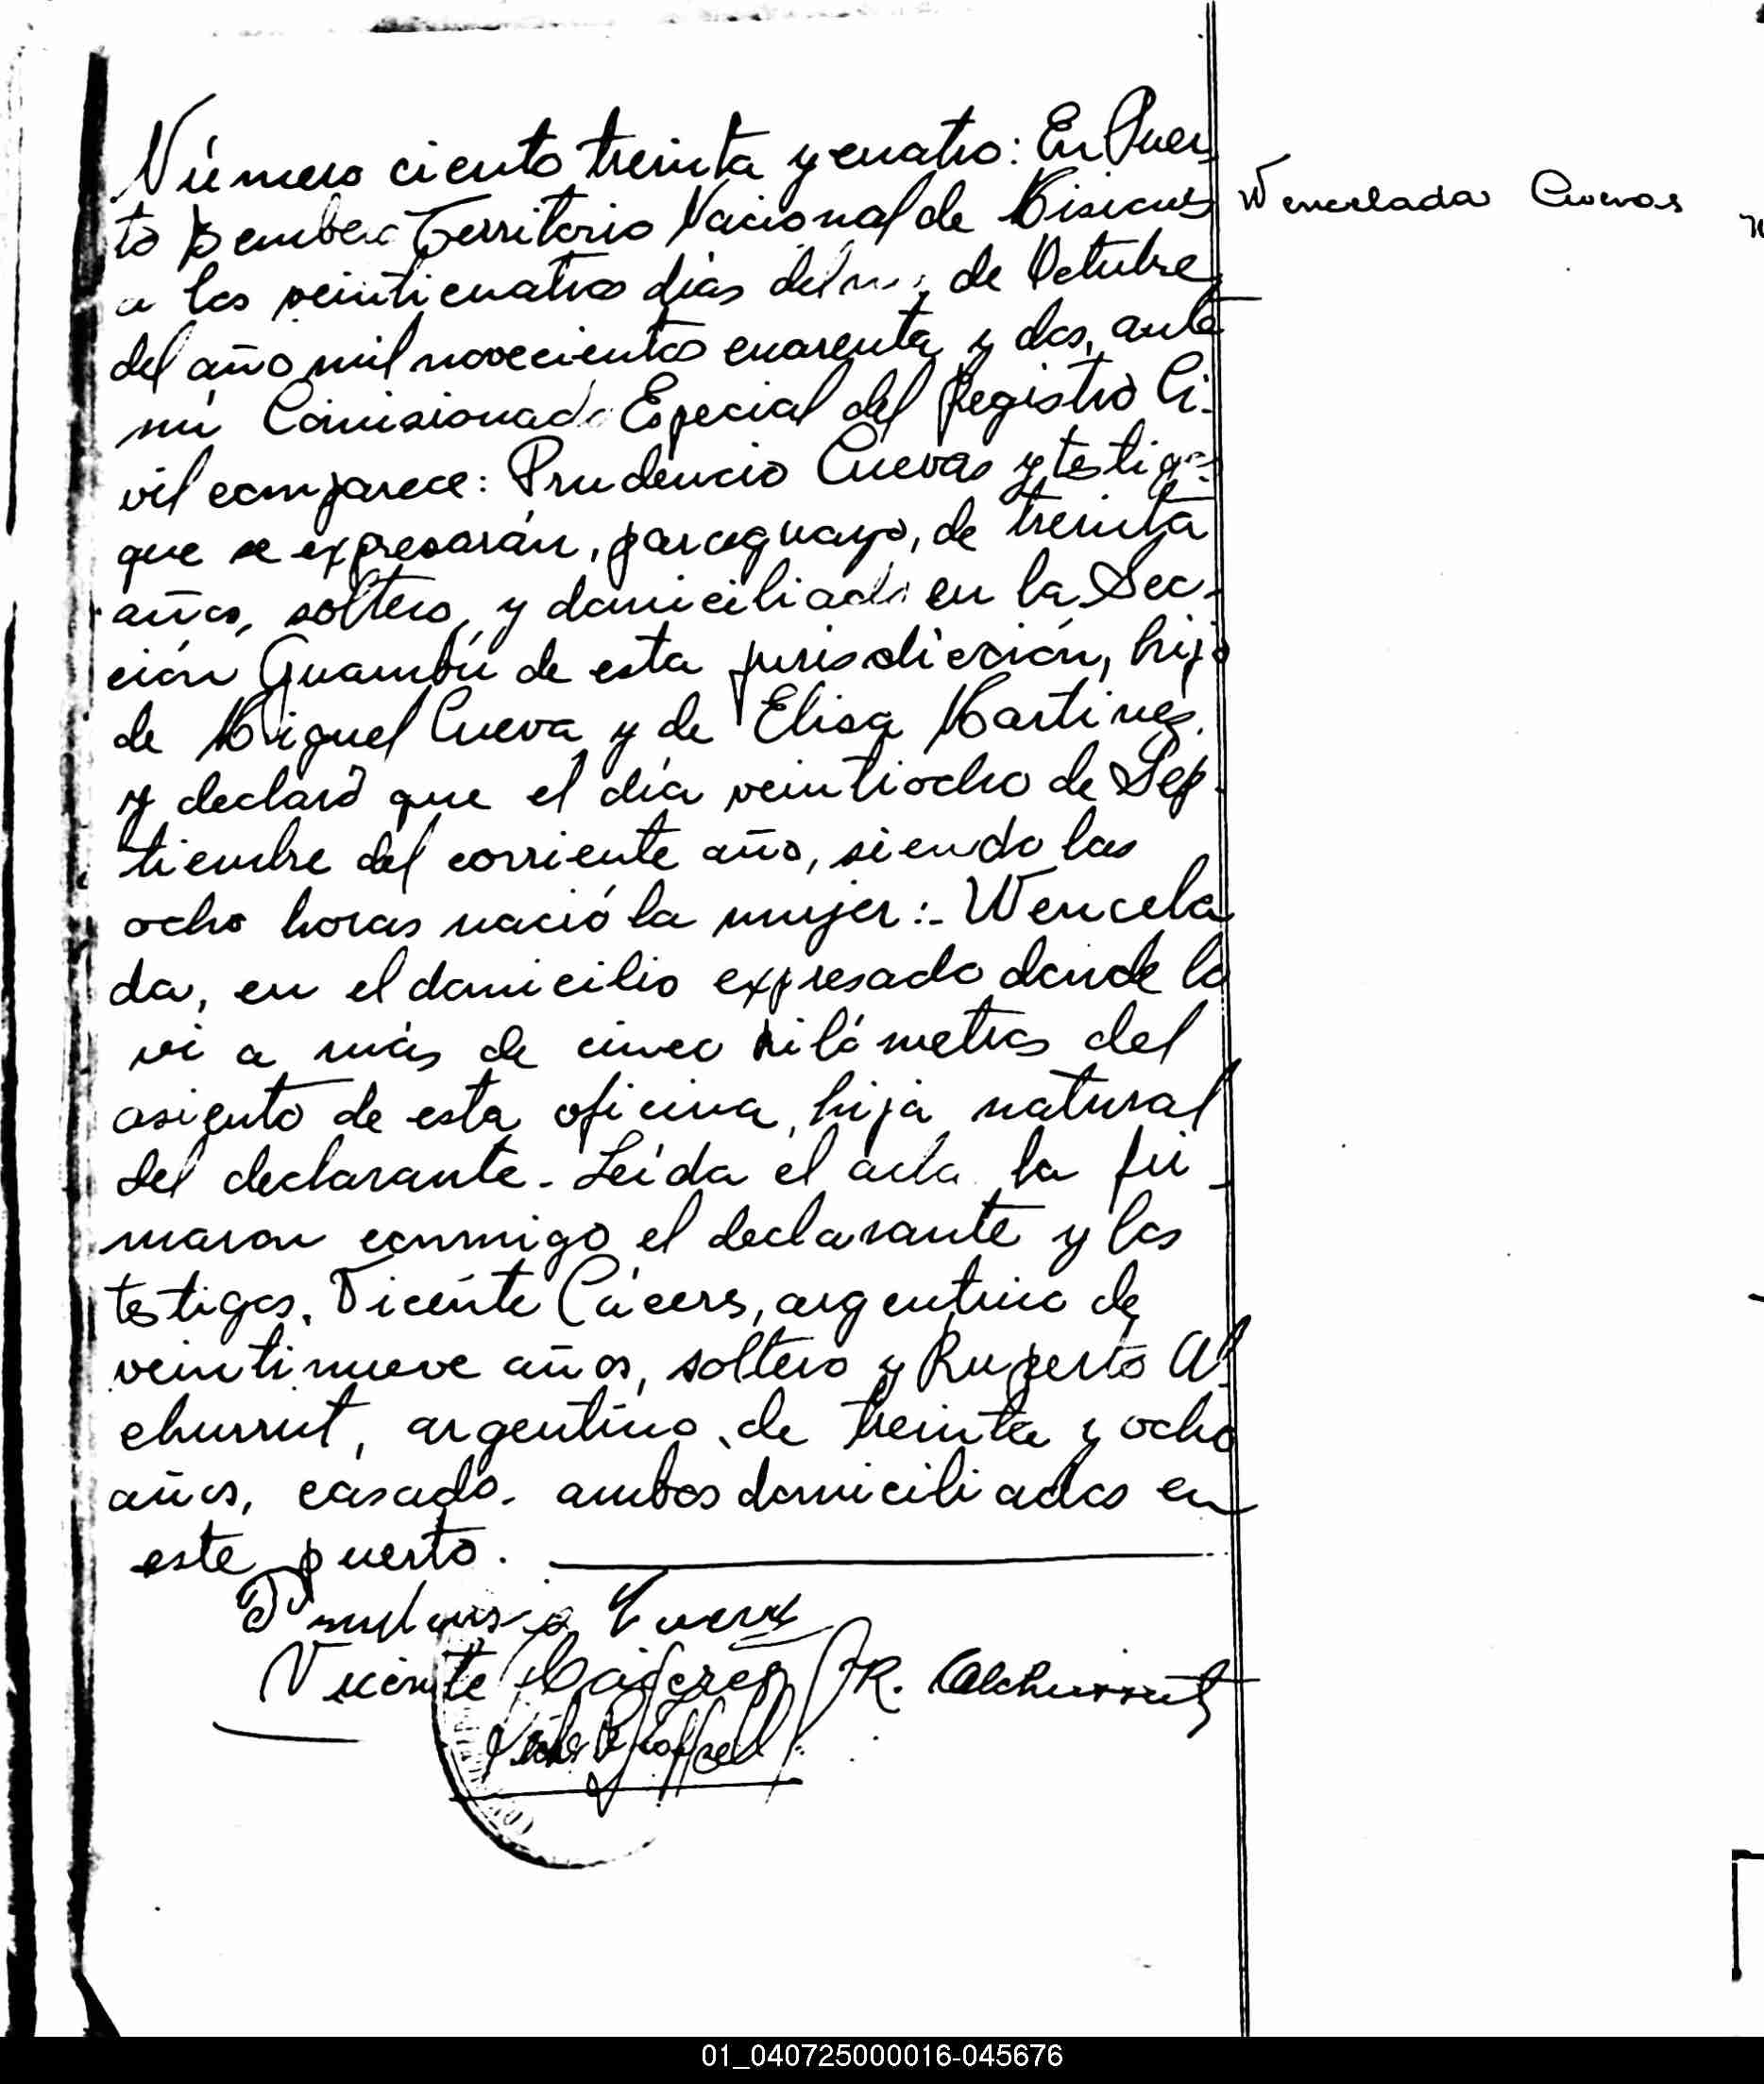 Número ciento treinta y cuatro: En Puer-
to Bemberg Territorio Nacional de Misiones
a los veinticuatro días del mes de Octubre
del año mil novecientos cuarenta y dos, ante
mi Comisionado Especial del Registro Ci-
vil comparece: Prudencio Cuevas y testigos
que se expresarán, paraguayo, de treinta
años, soltero, y domiciliado en la Sec-
ción Guambú de esta jurisdicción, hijo
de Miguel Cueva y de Elisa Martinez.
y declaró que el día veintiocho de Sep-
tiembre del corriente año, siendo las
ocho horas nació la mujer:- Wencela
da, en el domicilio expresado donde la
vi a más de cinco kilómetros del
asiento de esta oficina, hija natural
del declarante. Leída el acta la fir-
maron conmigo el declarante y los
testigos. Vicente Cáceres, argentino de
veintinueve años, soltero y Ruperto Al-
churrut, argentino, de treinta y ocho
años, casado. ambos domiciliados en
este puerto.
Prudensio Cueva
Vicente Caseres R. Alchurrut
Wencelada Cuevas
01_040725000016-045676